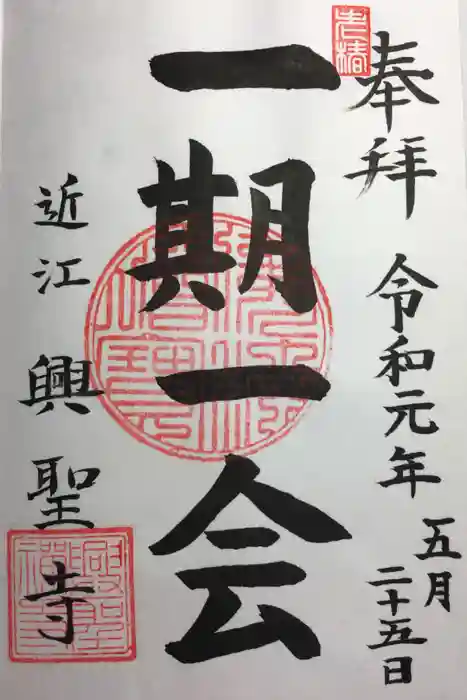 奉拝 令和元年
五月
二十五日
老椿
一期一会
近江 興聖寺